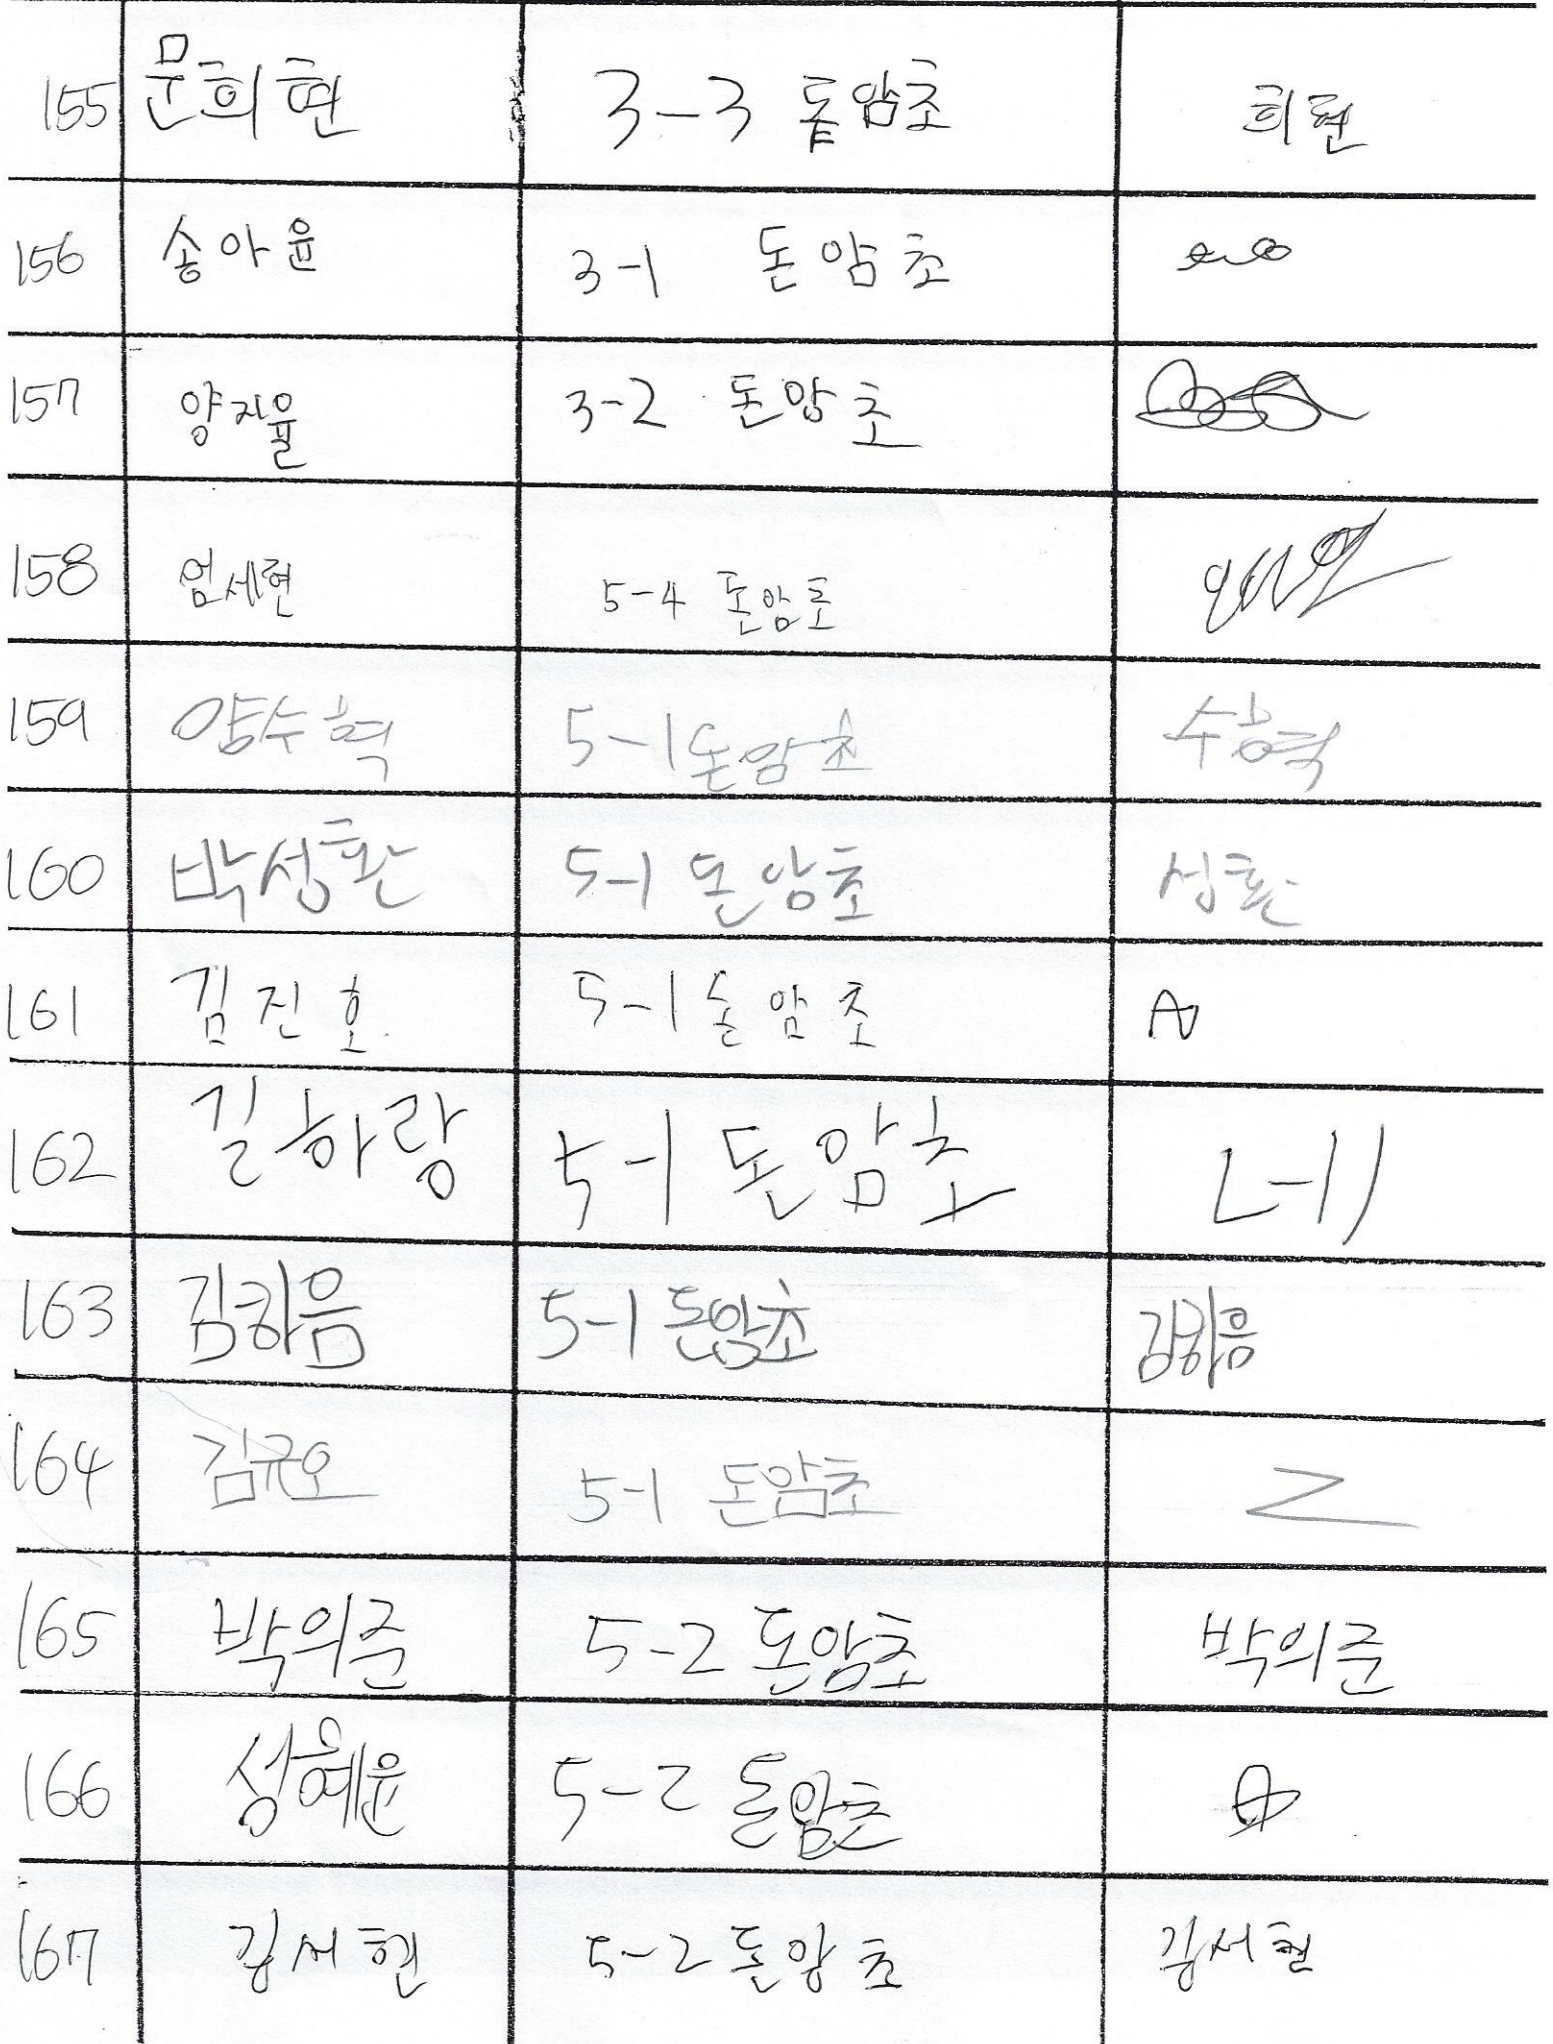 155 문희현 3-3 돈암초 희현
156 송아윤 3-1 돈암초
157 양지율 3-2 돈암초
158 엄세현 5-4 돈암초
159 양수혁 5-1 돈암초 수혁
160 박성환 5-1 돈암초 성환
161 김진호 5-1 돈암초
162 길하랑 5-1 돈암초
163 김하음 5-1 돈암초 김하음
164 김규오 5-1 돈암초
165 박의준 5-2 돈암초 박의준
166 성혜윤 5-2 돈암초
167 김서현 5-2 돈암초 김서현